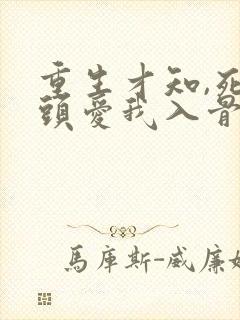 重生才知,死
頭愛我入骨
馬庫斯-威廉姆